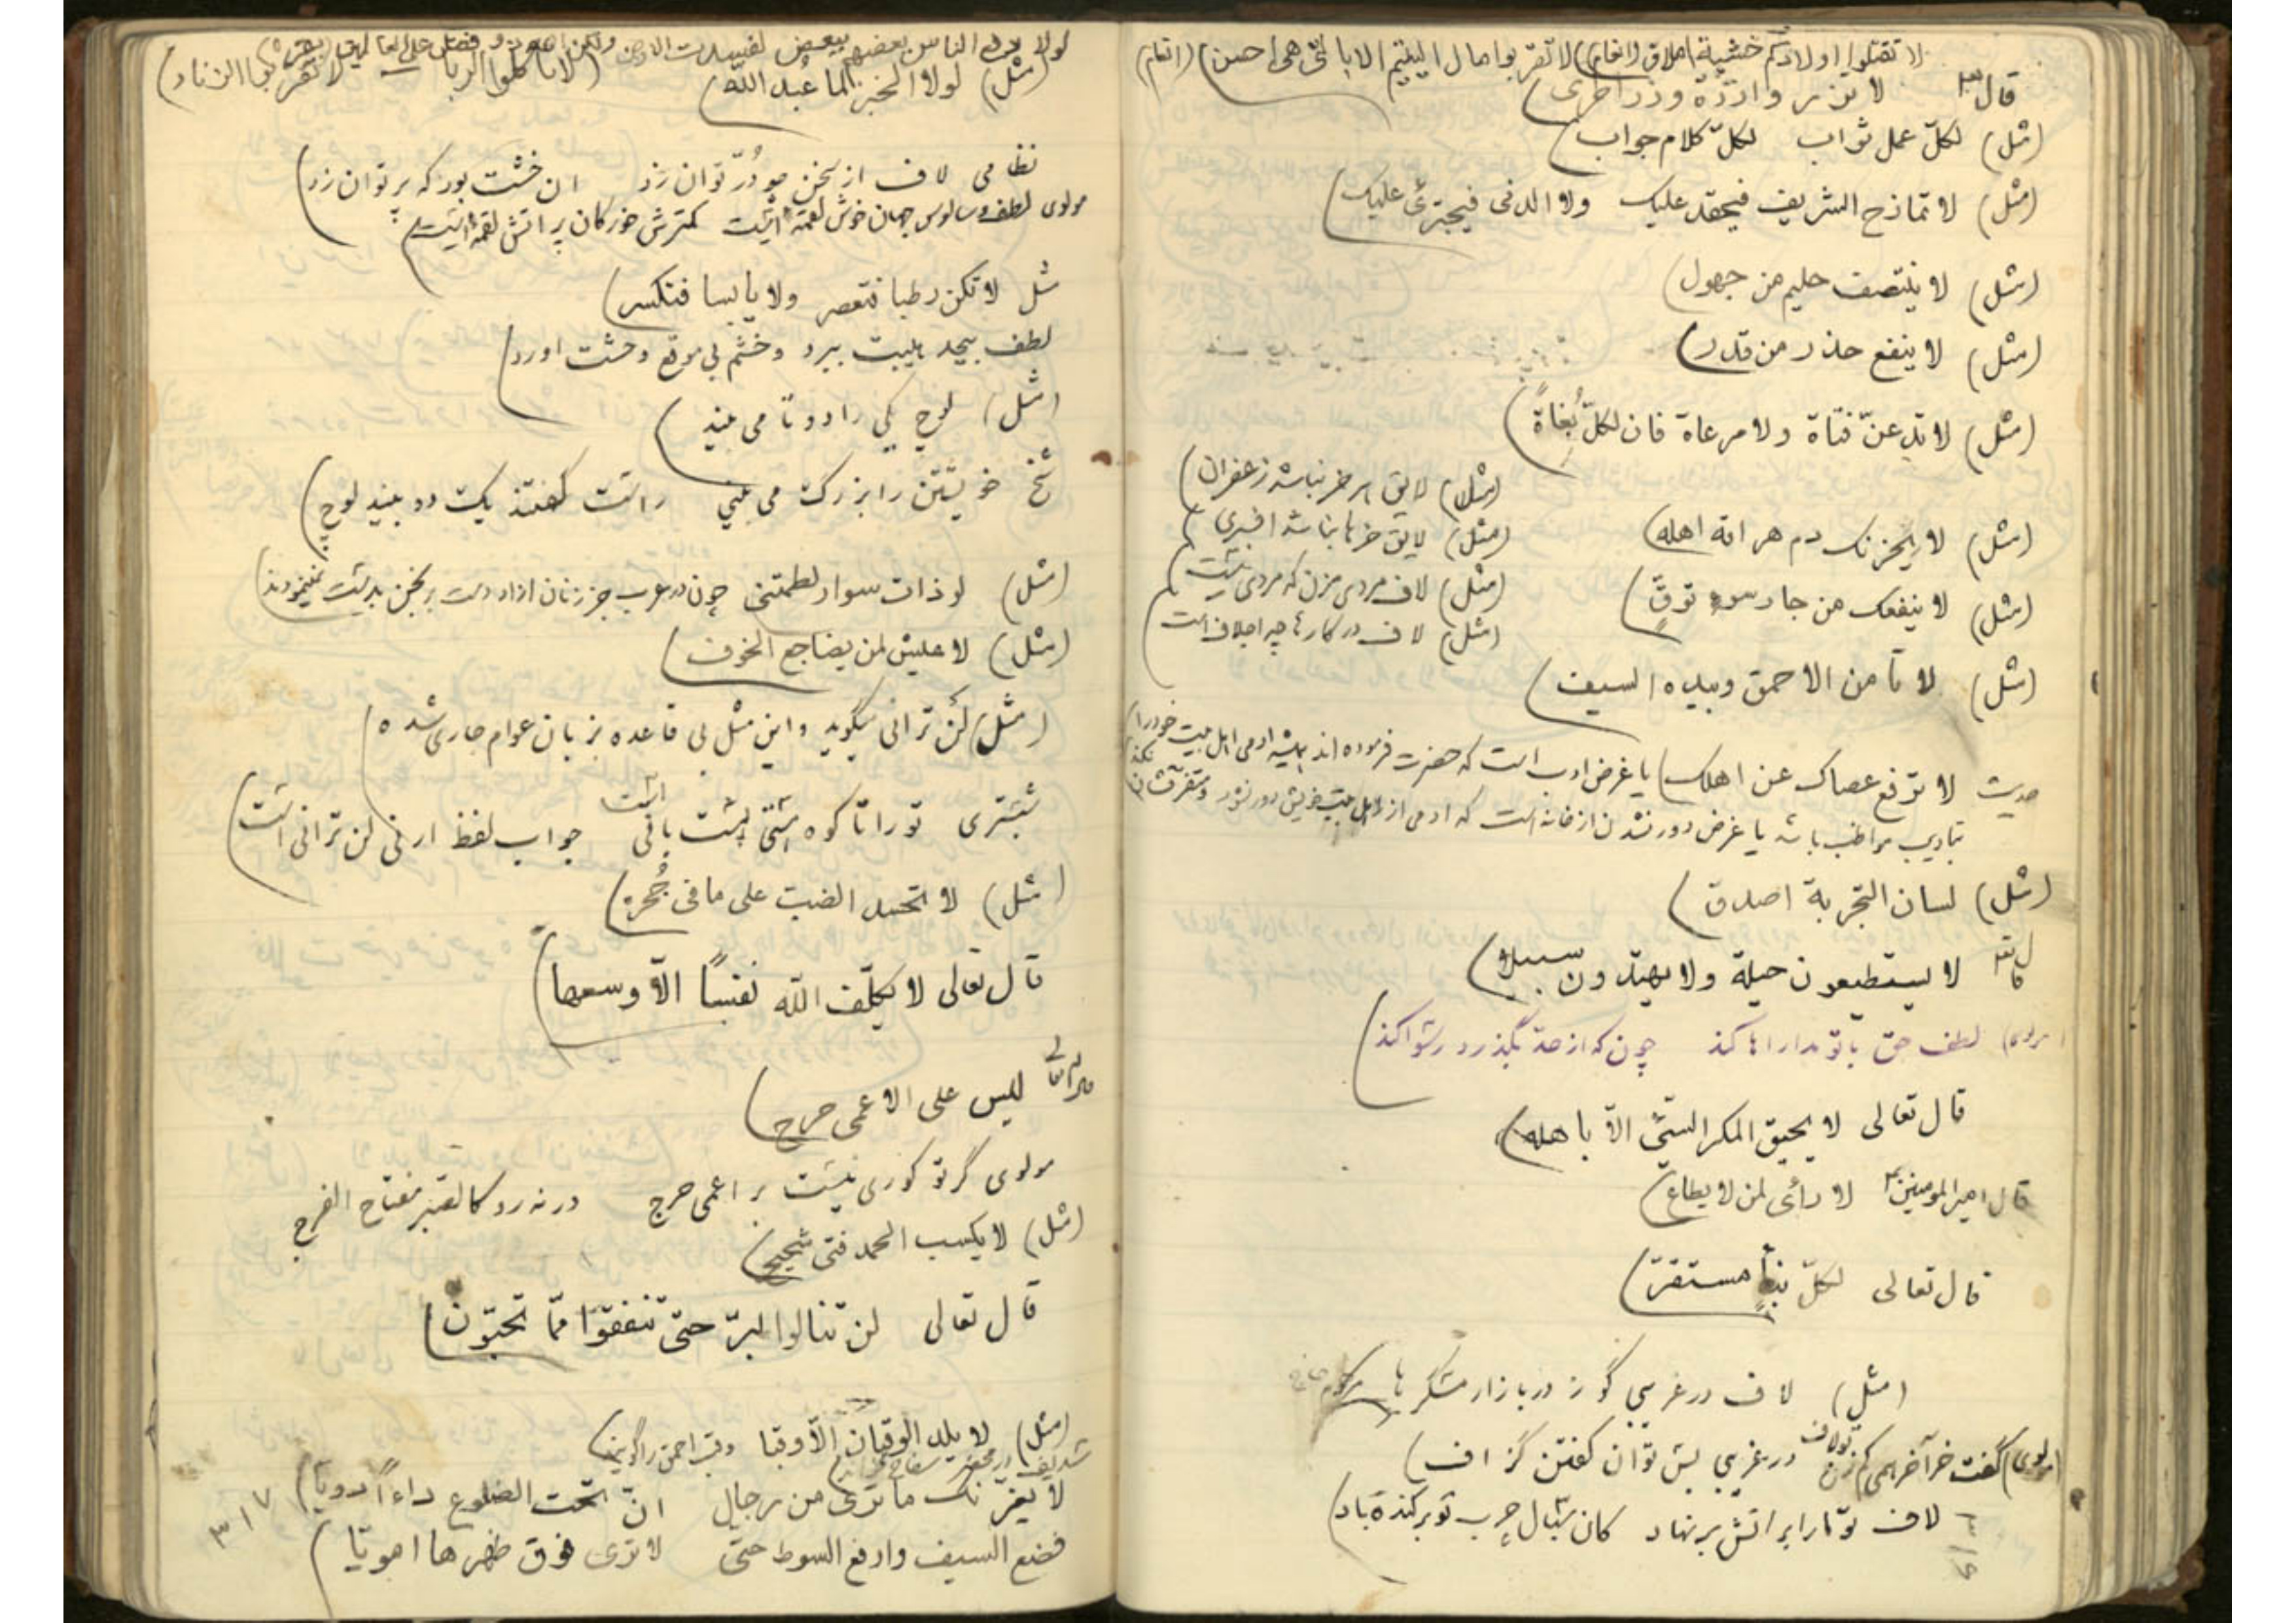 لا تقتلوا اولادکم خشیة املاق (انعام) لا تقربوا مال الیتیم الا بالتی هی احسن) (انعام)
قال تع لا تزر وازرة وزر اخری)
(مثل) لکلّ عمل ثواب لکلّ کلام جواب)
(مثل) لا تمازح الشریف فیحقد علیک ولا الدنی فیجترئ علیک)
(مثل) لا ینتصف حلیم من جهول)
(مثل) لا ینفع حذر من قدر)
(مثل) لا تدعنّ فتاة ولا مرعاة فان لکلّ بُغاةً)
(مثل) لایق هر خر نباشد زعفران)
(مثل) لا یحزنک دم هراقه اهله)
(مثل) لایق خرها نباشد افسری)
(مثل) لا ینفعک من جار سوء توقٍّ)
(مثل) لاف مردی مزن که مردی نیست)
(مثل) لاف در کارها چه اجلاف است
(مثل) لا تأمن الاحمق وبیده السیف)
حدیث لا ترفع عصاک عن اهلک) یا غرض ادب است که حضرت فرموده اند همیشه ادمی اهل بیت خود را
بتادیب مواظب باشد یا غرض دور نشدن از خانه است که ادمی از اهل بیت خویش دور نشود و متفرقشان نکند)
(مثل) لسان التجربة اصدق)
قال تع لا یستطیعون حیلة ولا یهتدون سبیلا)
(مولوی) لطف حق با تو مداراها کند چون که از حد بگذرد رسوا کند)
قال تعالی لا یحیق المکر السیّئ الّا باهله)
قال امیرالمومنین ع لا رأی لمن لا یطاع)
قال تعالی لکلّ نبأٍ مستقرّ)
(مثل) لاف در غریبی گوز در بازار مسگرها
(مولوی) گفت خر آخر همی کم زن تو لاف در غریبی بس توان گفتن گزاف)
لاف تو ما را بر اتش بر نهاد کان سبال چرب تو برکنده باد)
۳۱۶
لولا دفع الناس بعضهم ببعض لفسدت الارض ولکن الله ذو فضل علی العالمین (بقره)
(مثل) لولا الخبز لما عُبد اللّه) (لا تاکلوا الربا لا تقربوا الزناد)
نظامی لاف از سخن چو دُرّ توان زد ان خشت بود که پر توان زد)
مولوی لطف و سالوس جهان خوش لقمه ایست کمترش خور کان پر اتش لقمه ایست)
مثل لا تکن رطبا فتعصر ولا یابسا فتکسر)
لطف بیحد هیبت ببرد و خشم بی موقع وحشت اورد)
(مثل) لوچ یکی را دو تا می بیند)
شیخ خویشتن را بزرگ می بینی راست گفتند یک دو بیند لوچ)
(مثل) لو ذات سوار لطمتنی چون در عرب جز زنان ازاد دست برنجن بدست نمینمودند)
(مثل) لا عیش لمن یضاجع الخوف)
(مثل) لن ترانی میگوید و این مثل بی قاعده بزبان عوام جاری شده)
شبستری تو را تا کوه هستی پیش باقی است جواب لفظ ارنی لن ترانی است)
(مثل) لا تحسد الضبّ علی ما فی جُحره)
قال تعالی لا یکلّف اللّه نفساً الّا وسعها)
قال الله تعالی لیس علی الاعمی حرج)
مولوی گر تو کوری نیست بر اعمی حرج ورنه رو کالصبر مفتاح الفرج
(مثل) لا یکسب الحمد فتی شحیح)
قال تعالی لن تنالوا البرّ حتّی تنفقوا ممّا تحبّون)
(مثل) لا یلد الوقبان الّا وقبا وقب احمق را گویند)
لا یغرّنک ما تری من رجال انّ تحت الضلوع داءاً دویّا)
فضع السیف وارفع السوط حتّی لا تری فوق ظهرها امویّا)
۳۱۷